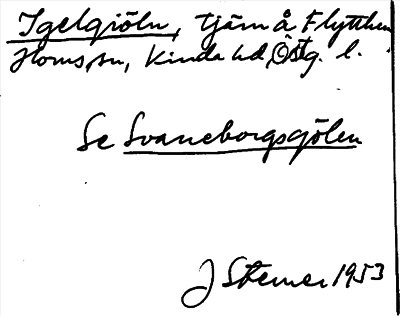 Igelgjöln, tjärn å Flytthem
Horns sn, Kinda hd, Östg. l.
Se Svaneborgsgölen
J Sterner 1953